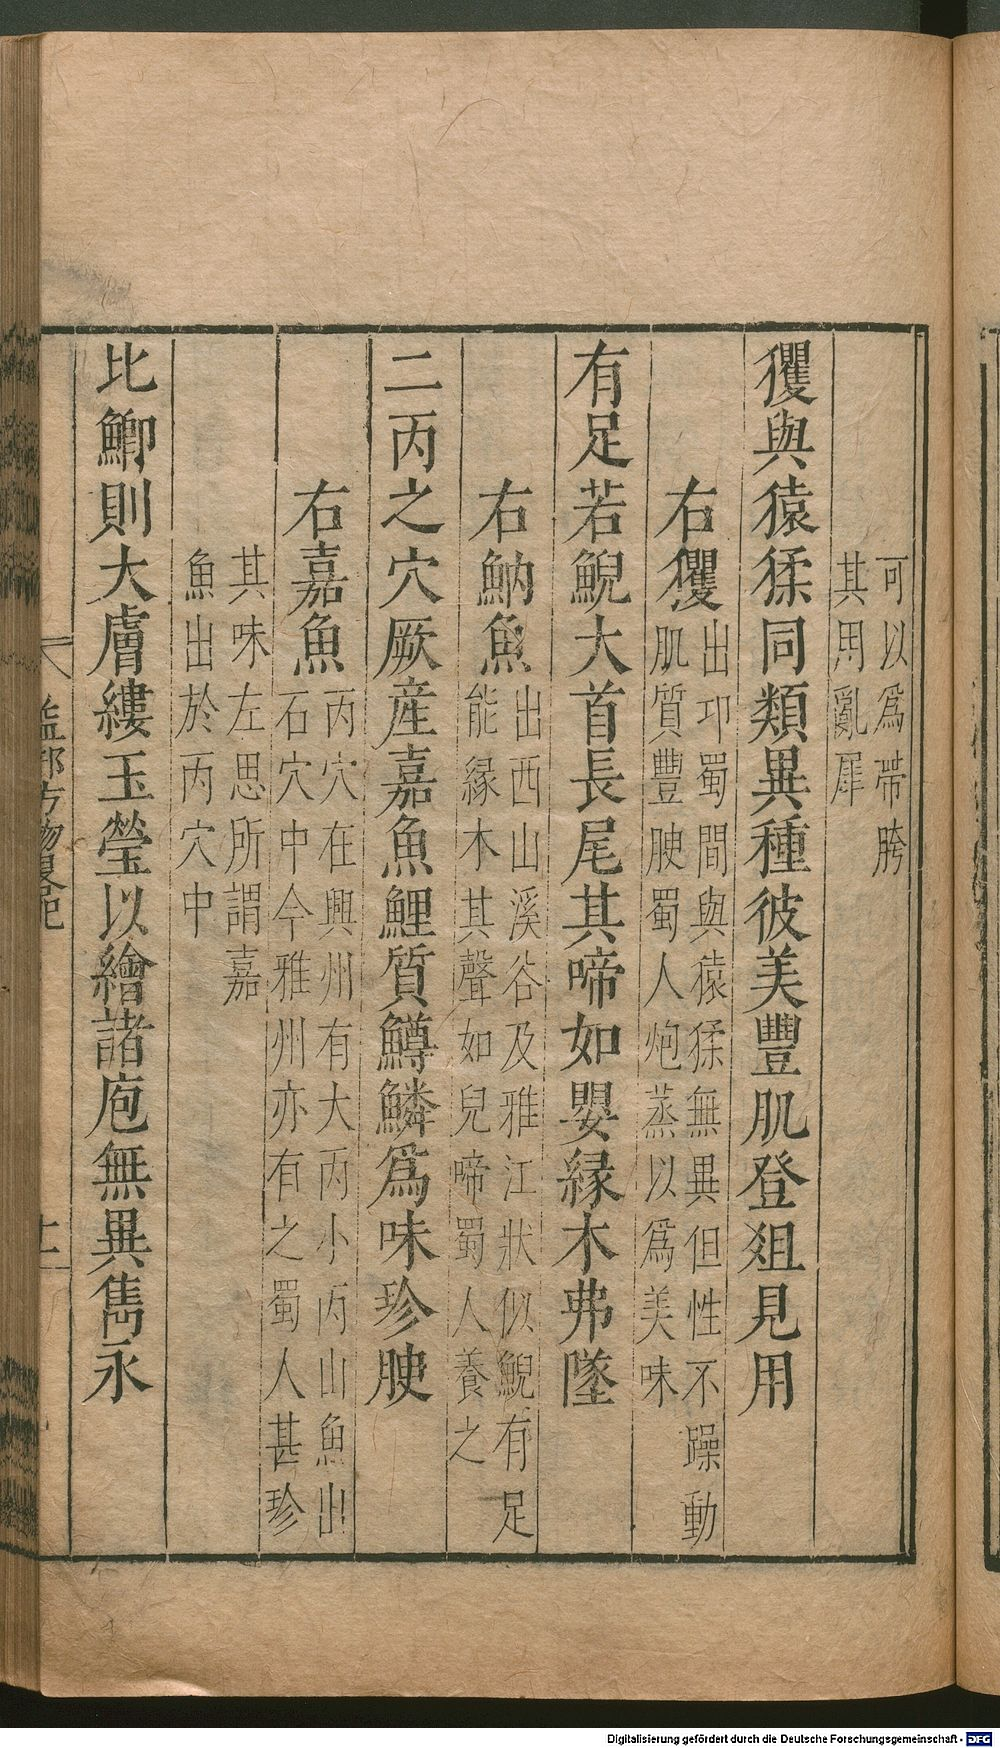 可以爲帶胯
其用亂犀
玃與猿猱同類異種彼美豐肌登俎見用
右玃
出邛蜀間與猿猱無異但性不躁動
肌質豐腴蜀人炮蒸以爲美味
有足若鯢大首長尾其啼如嬰緣木弗墜
右魶魚
出西山溪谷及雅江狀似鯢有足
能緣木其聲如兒啼蜀人養之
二丙之穴厥産嘉魚鯉質鱒鱗爲味珍腴
右嘉魚
丙穴在興州有大丙小丙山魚出
石穴中今雅州亦有之蜀人甚珍
其味左思所謂嘉
魚出於丙穴中
比鯽則大膚縷玉瑩以繪諸庖無異雋永
益部方物畧記
Digitalisierung gefördert durch die Deutsche Forschungsgemeinschaft - DFG